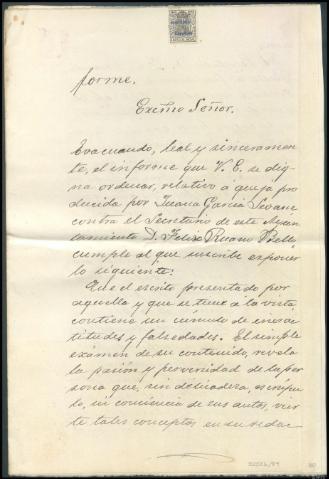 forme.
Excmo Señor.
Evacuando, leal y sinceramen-
te, el informe que V. E. se dig-
na ordenar, relativo á queja pro
ducida por Juana García Seoane
contra el Secretario de este Ayun
tamiento D. Felix Ruano Bello,
cumple al que suscribe exponer
lo siguiente:
Que el escrito presentado por
aquella y que se tiene á la vista
contiene un cúmulo de inexac
titudes y falsedades. El simple
exámen de su contenido, revela
la pasión y perversidad de la per
sona que, sin delicadeza, escrúpu
lo, ni conciencia de sus actos, vier
te tales conceptos en su redac